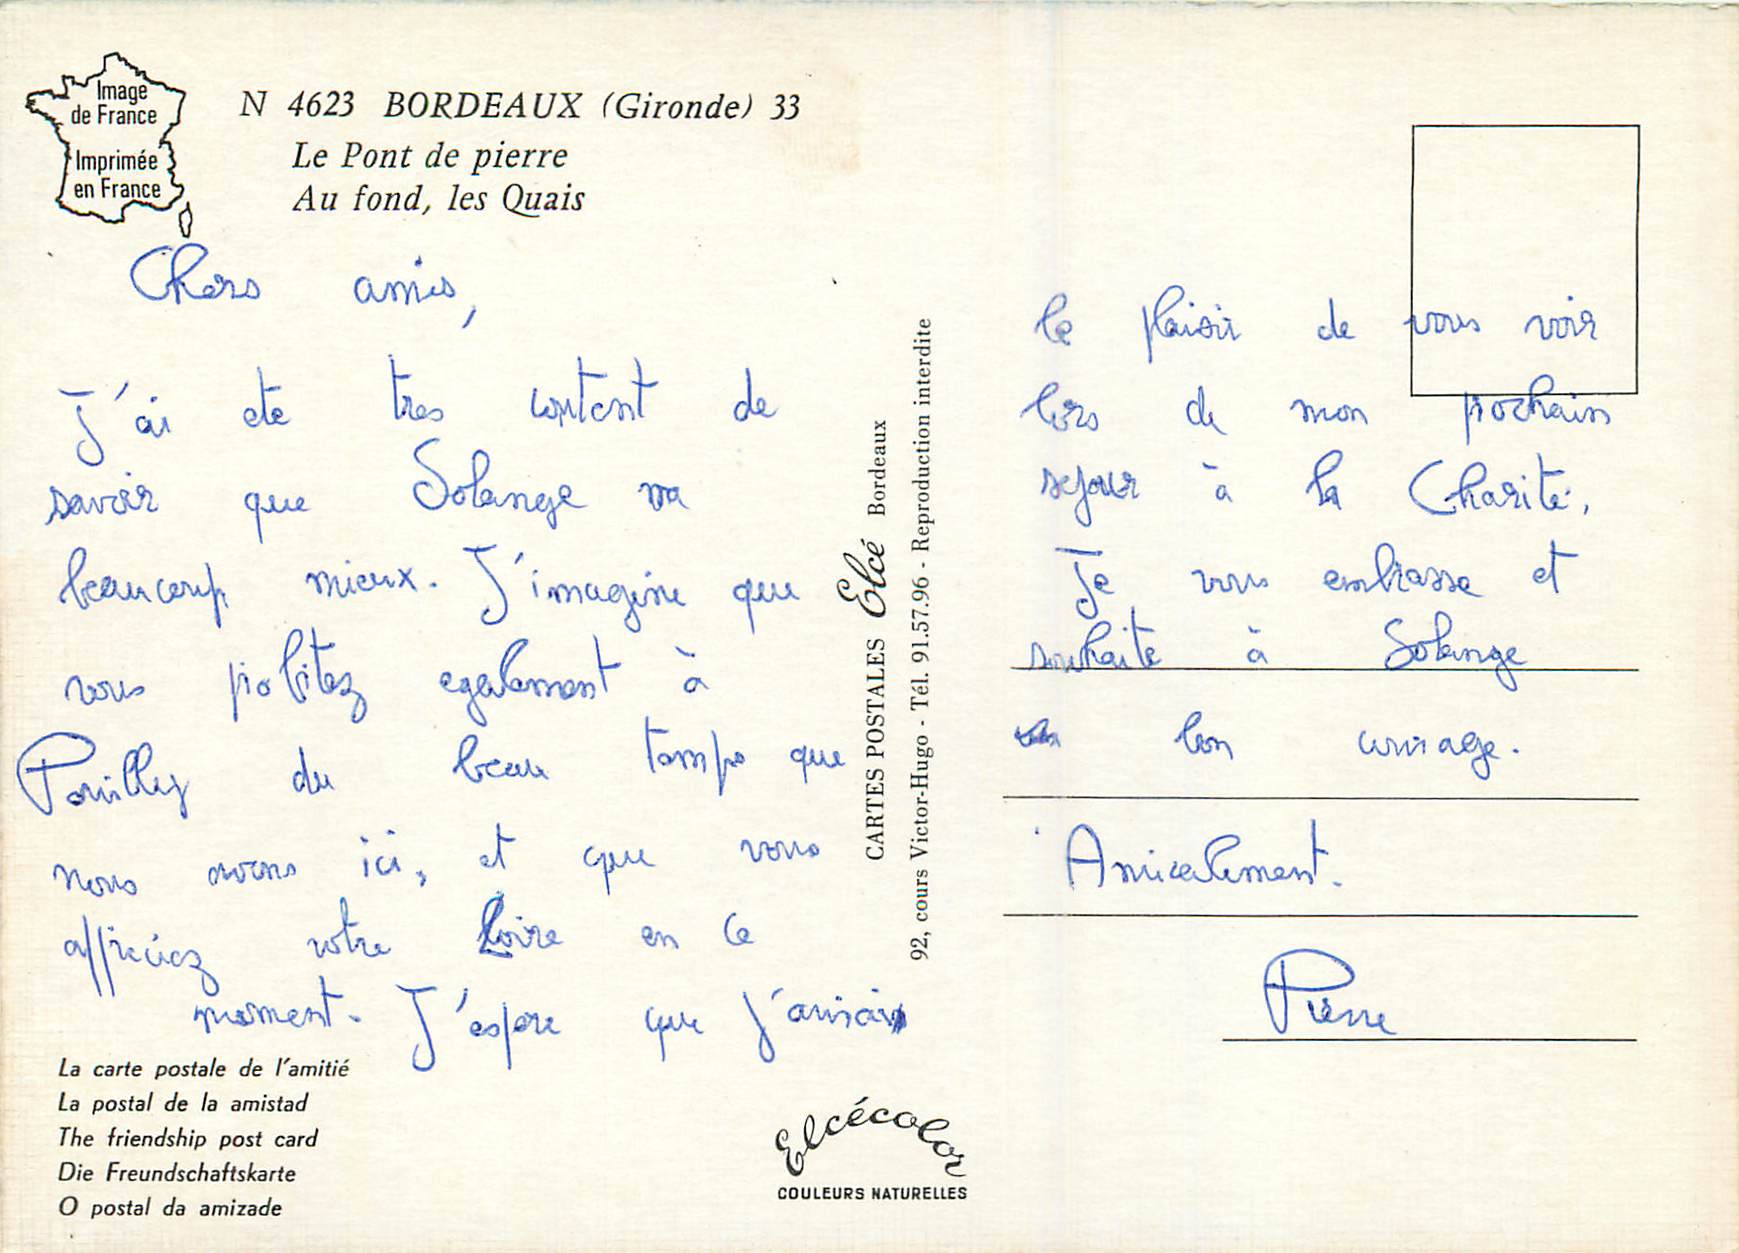 Image
de France
Imprimée
en France
N 4623 BORDEAUX (Gironde) 33
Le Pont de pierre
Au fond, les Quais
Chers amis,
J'ai ete tres content de
savoir que Solange va
beaucoup mieux. J'imagine que
vous profitez egalement à
Pouilly du beau temps que
nous avons ici, et que vous
appréciez votre Loire en ce
moment. J'espere que j'aurai
La carte postale de l'amitié
La postal de la amistad
The friendship post card
Die Freundschaftskarte
O postal da amizade
CARTES POSTALES Elcé Bordeaux
92, cours Victor-Hugo - Tél. 91.57.96 - Reproduction interdite
Elcécolor
COULEURS NATURELLES
le plaisir de vous voir
lors de mon prochain
sejour à la Charité.
Je vous embrasse et
souhaite à Solange
bon courage.
Amicalement.
Pierre